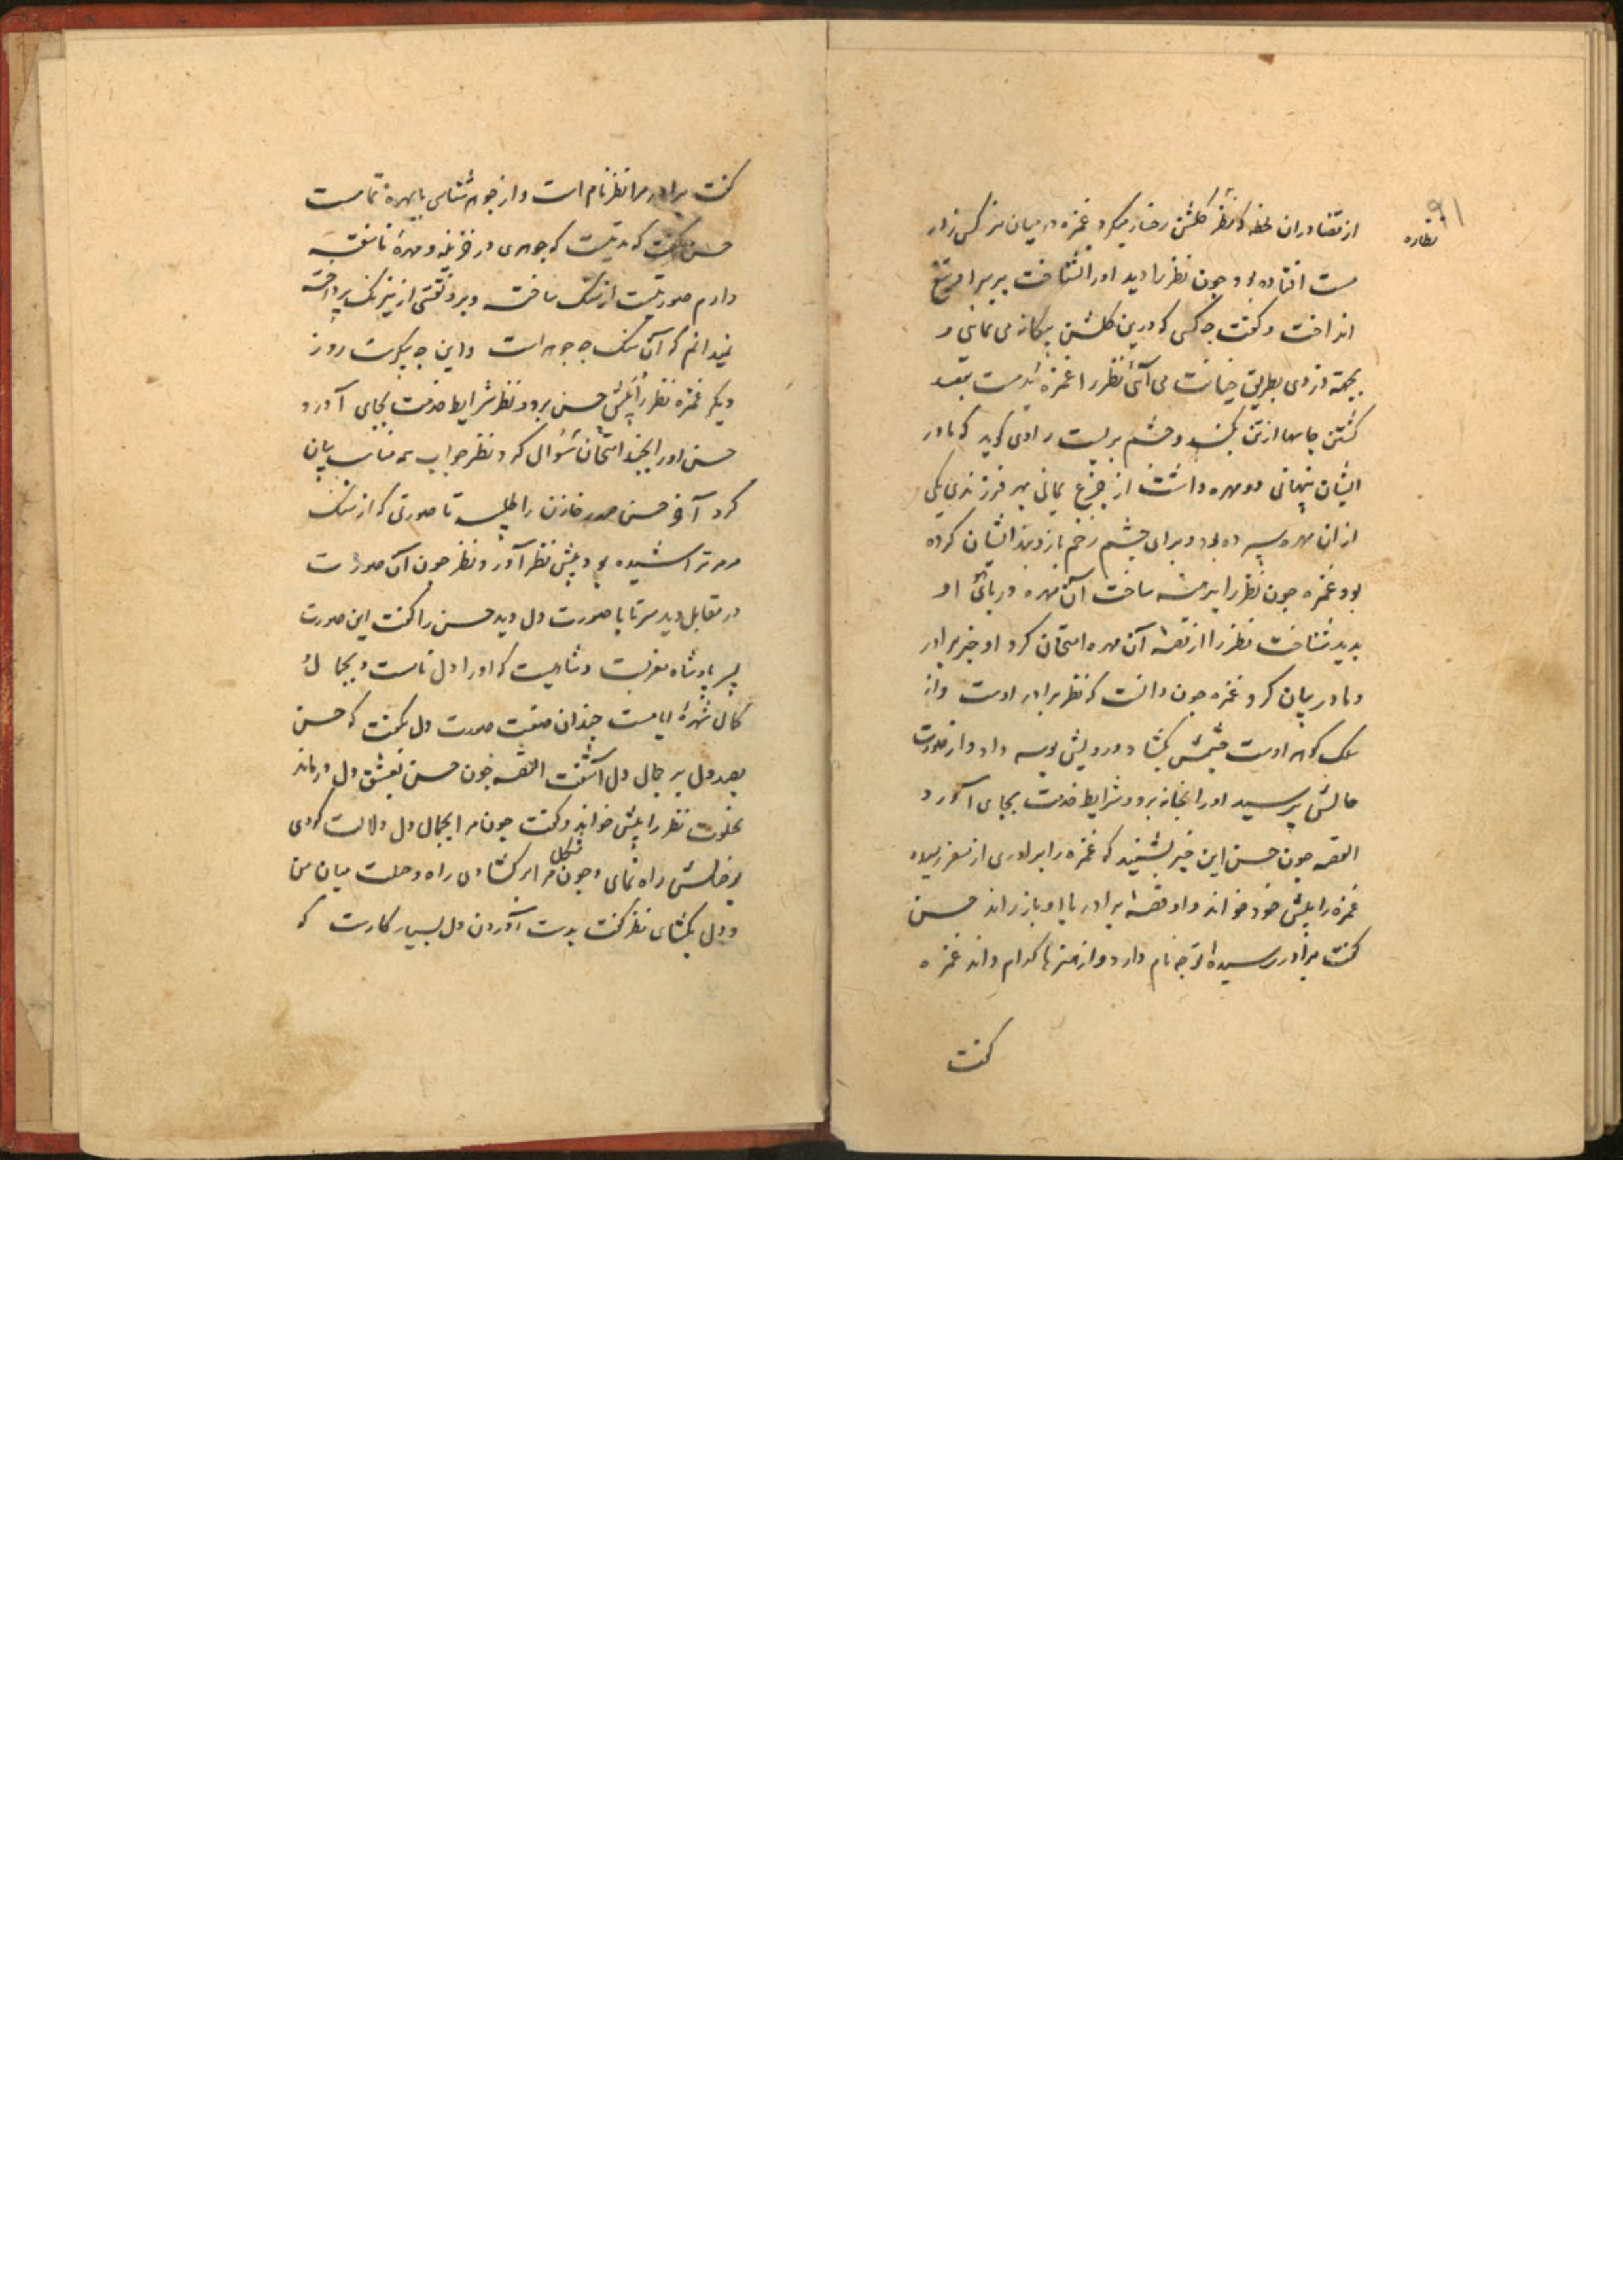 ۹۱
نظاره
از قضا در ان لحظه که نظر گلشن رخسار میکرد غمزه در میان نرکس زار
مست افتاده بود چون نظر را دید اورا نشناخت بر سر او تیغ
انداخت و کفت چه کسی که درین کلشن بیکانه می نمایی و
بجهة دزدی بطریق خیانت می آئی نظر را غمزه مست بقصد
کشتن جامها از تن بکند و چشم بر بست راوی کوید که مادر
ایشان پنهانی دو مهره داشت از جزع یمانی بهر فرزندی یکی
از ان مهره سپرده بود و برای چشم زخم بازوبند ایشان کرده
بود غمزه چون نظر را برهنه ساخت آن مهره در بازوی او
بدید بشناخت نظر را از قصه آن مهره امتحان کرد او خبر برادر
و مادر بیان کرد غمزه چون دانست که نظر برادر اوست و از
سلک کوهر اوست چشمش بکشاد و رویش بوسه داد و از صورت
حالش پرسید اورا بخانه برد و شرایط خدمت بجای آورد
القصه چون حسن این خبر بشنید که غمزه را برادری از سفر رسیده
غمزه را پیش خود خواند و او قصه برادر با او باز راند حسن
کفت برادر رسیده تو چه نام دارد و از هنرها کدام داند غمزه
کفت
کفت برادر مرا نظر نام است و از جوهر شناسی با بهره تمامست
حسن کفت که مدتیست که جوهری در خزینه و مهره ناسفته
دارم صورتیست از سنک ساخته و برو نقشی از نیرنک پرداخته
نمیدانم که آن سنک چه جوهر است و این چه پیکرست روز
دیکر غمزه نظر را پیش حسن برد و نظر شرایط خدمت بجای آورد
حسن اورا بچند امتحان سؤال کرد و نظر جواب همه مناسب بیان
کرد آخر حسن خازن را طلبید تا صورتی که از سنک
مرمر تراشیده بود پیش نظر آورد نظر چون آن صورت
در مقابل دید سر تا پا صورت دل دید حسن را کفت این صورت
پسر پادشاه مغربست و شاهیست که اورا دل نامست و بجمال و
کمال شهرهٔ ایامست چندان صفت صورت دل بکفت که حسن
بصد دل بر جمال دل آشفت القصه چون حسن بعشق دل درماند
بخلوت نظر را پیش خواند و کفت چون مرا بجمال دل دلالت کردی
بوصالش راه نمای و چون مشکل مرا بر کشادی راه وصلت میان من
و دل بکشای نظر کفت بدست آوردن دل بسیار کارست که